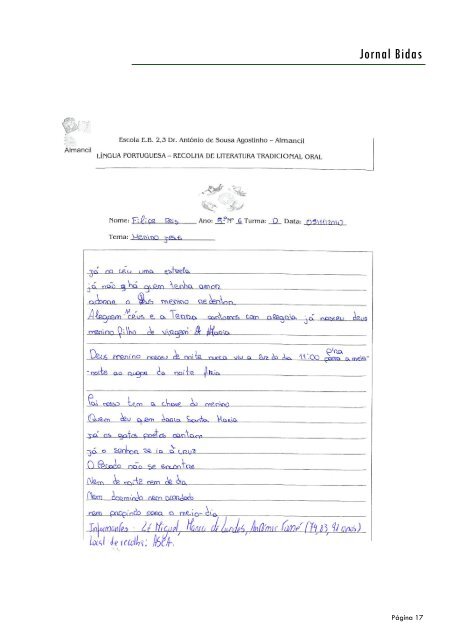 Jornal Bidas
Almancil
Escola E.B. 2,3 Dr. António de Sousa Agostinho – Almancil
LÍNGUA PORTUGUESA – RECOLHA DE LITERATURA TRADICIONAL ORAL
Nome: Filipe Ano: 5º Nº 6 Turma: D Data:
Tema: Menino Jesus
já ao céu uma estrela
já não há quem tenha amor
adorar o Deus menino redentor.
Alegrem céus e a Terra cantemos com alegria já nasceu deus
menino filho de virgem Maria
Deus menino nasceu de noite nunca viu a luz do dia 11:00 para a meia
-noite ao da noite fria
Pai nosso tem a chave do menino
Quem deu quem daria Santa Maria
já os gatos pretos cantam
já o senhor se ia à cruz
O Pecado não se encontre
Nem de noite nem de dia
Nem dormindo nem acordado
nem para o meio-dia
Informantes - Zé Miguel, Maria de Lurdes, António (79, 83, 92 anos)
Local de recolha: ASCA.
Página 17